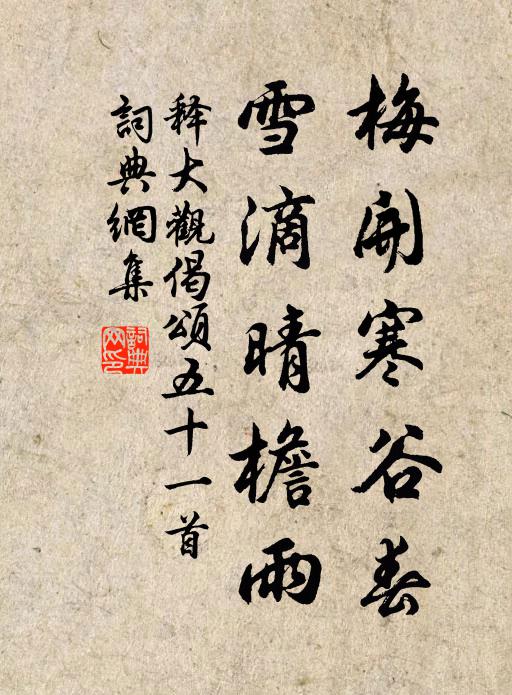 梅開寒谷春
雪滴晴檐雨
释大觀偈頌五十一首
詞典網集
詞典网印